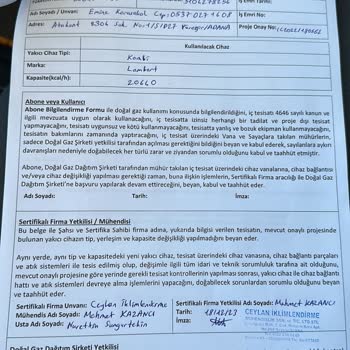 Adı Soyadı / Unvan: Emine Karakabak Cep: 0537 027 1608
İş Emri Tarihi:
İş Emri No:
Adres: Atakent 2304 Sok No: 1/51 D:7 Yüreğir/ADANA
Proje Onay No:
Kullanılacak Cihaz
Yakıcı Cihaz Tipi: Kombi
Marka: Lambert
Kapasite(kcal/h): 20640
Abone veya Kullanıcı
Abone Bilgilendirme Formu ile doğal gaz kullanımı konusunda bilgilendirildiğini, iç tesisatı 4646 sayılı kanun ve
ilgili mevzuata uygun olarak kullanacağını, iç tesisatta izinsiz herhangi bir tadilat ve proje dışı tesisat
yapmayacağını, tesisatı uygunsuz ve kötü kullanmayacağını, tesisatta yanlış ve bozuk ekipman kullanmayacağını,
tesisatın bakımlarını zamanında yaptıracağını, iç tesisat üzerindeki Vana ve Sayaçlara takılan mühürlerin,
sadece Doğal Gaz Şirketi yetkilisi tarafından açılması gerektiğini bildiğini beyan ve kabul ederek, sayılanlara aykırı
davranışları nedeniyle doğabilecek her türlü zarar ve ziyandan sorumlu olduğunu kabul ve taahhüt etmiştir.
Abone, Doğal Gaz Dağıtım Şirketi tarafından mühür takılan iç tesisat üzerindeki cihazlarının, cihaz bağlantısı
ve/veya cihaz değişikliği yapılması gerektiği zaman, buna ilişkin işlemlerin, Sertifikalı Firma aracılığı ile Doğal Gaz
Şirketi'ne başvuru yapılarak devam ettireceğini, beyan, kabul ve taahhüt eder.
Adı Soyadı: Tarih: İmza:
Sertifikalı Firma Yetkilisi / Mühendisi
Bu belge ile Şahsı ve Sertifika Sahibi firma adına, yukarıda bilgisi verilen tesisatın, mevcut onaylı projesinde
bulunan yakıcı cihazın tip, yerleşim ve kapasite değişikliği yapılmadığını beyan eder.
Aynı yerde, aynı tip ve kapasitedeki yeni yakıcı cihaz, tesisat üzerindeki cihaz vanasına, cihaz bağlantı parçaları
ve atık sistemleri ile tesis edilmiş olup, değişimle ilgili tüm idari ve teknik sorumluluk tarafına ait olduğunu,
mevcut onaylı projesine göre yerinde gerekli tesisat kontrollerinin yapılması sonrası, yakıcı cihaz ile cihaz bağlantı
hattı ve atık sistemleri devreye alma işlemlerini yapacağını, doğabilecek sorunlardan sorumlu olduğunu beyan
ve taahhüt eder.
Sertifikalı Firma Unvan: Ceylan İklimlendirme
Sertifikalı Firma Yetkilisi Adı Soyadı: Mehmet KAZANCI
Mühendis Adı Soyadı: Mehmet KAZANCI
Tarih: 18/12/23
Usta Adı Soyadı:
İmza:
CEYLAN İKLİMLENDİRME
Doğal Gaz Dağıtım Şirketi Yetkilisi